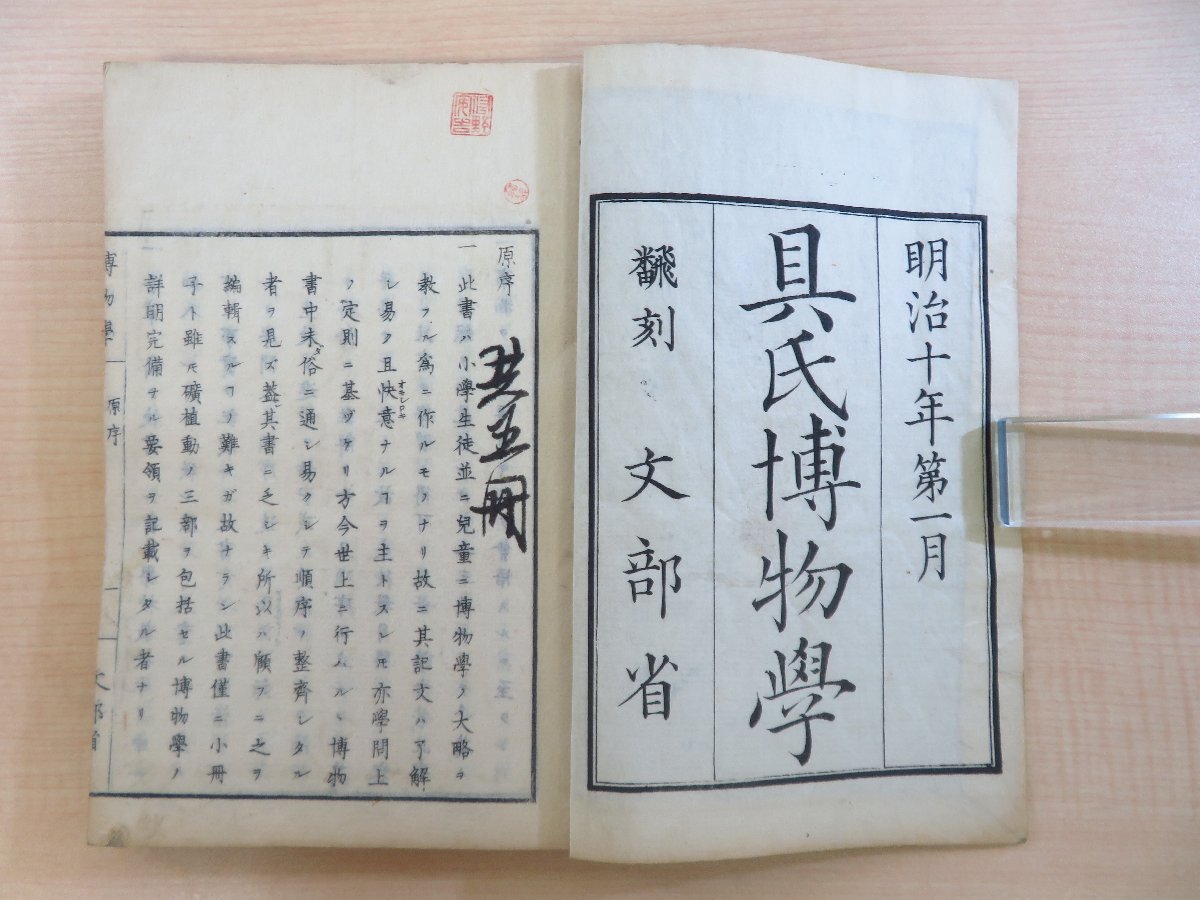 明治十年第一月
具氏博物學
飜刻 文部省
原序
一此書ハ小學生徒並ニ兒童ニ博物學ノ大略ヲ
教フル爲ニ作ルモノナリ故ニ其記文ハ了解
シ易ク且快意ナルヿヲ主トスレモ亦學問上
オモシロキ
ノ定則ニ基ヅケリ方今世上ニ行ハルヽ博物
書中未ダ俗ニ通シ易クシテ順序ノ整齊シタル
者ヲ見ズ蓋其書ニ乏シキ所以ハ顧フニ之ヲ
編輯スルヿノ難キガ故ナラン此書僅ニ小冊
子ト雖モ礦植動ノ三部ヲ包括セル博物學ノ
詳明完備ナル要領ヲ記載シタル者ナリ
共五冊
博物學
原序
一
文部省